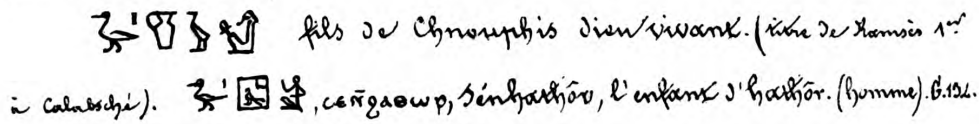 fils de Chnouphis dieu vivant. (titre de Ramsès 1er
à Calabsché). , ⲥⲉⲛ̄ϩⲁⲑⲱⲣ, Sénhathôr, l'enfant d'hathôr. (homme).